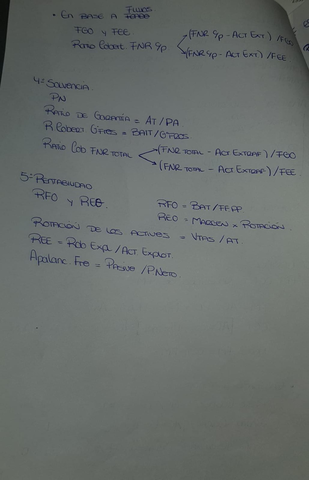 • EN BASE A FLUJOS
FGO y FEE
RATIO COBERT. FNR Gp (FNR Gp - ACT EXT) / FGO
(FNR Gp - ACT EXT) / FEE
4- SOLVENCIA
PN
RATIO DE GARANTÍA = AT/PA
R. COBERT GFROS = BAIT / GFROS
RATIO COB FNR TOTAL (FNR TOTAL - ACT EXTRAF) / FGO
(FNR TOTAL - ACT EXTRAF) / FEE
5- RENTABILIDAD
RFO y REO. RFO = BAT / FFPP
REO = MARGEN x ROTACIÓN.
ROTACION DE LOS ACTIVOS = VTAS / AT
REE = Rdo EXPL / ACT EXPLOT.
APALANC FRO = / PNETO.